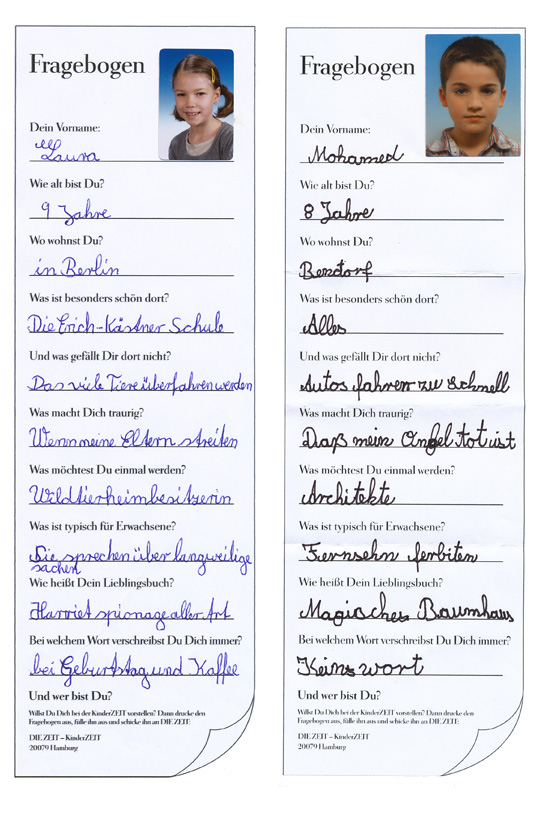 Fragebogen
Dein Vorname:
Laura
Wie alt bist Du?
9 Jahre
Wo wohnst Du?
in Berlin
Was ist besonders schön dort?
Die Erich-Kästner Schule
Und was gefällt Dir dort nicht?
Das viele Tiere überfahren werden
Was macht Dich traurig?
Wenn meine Eltern streiten
Was möchtest Du einmal werden?
Wildtierheimbesitzerin
Was ist typisch für Erwachsene?
Sie sprechen über langweilige
sachen
Wie heißt Dein Lieblingsbuch?
Harriet spionage aller Art
Bei welchem Wort verschreibst Du Dich immer?
bei Geburtstag und Kaffee
Und wer bist Du?
Willst Du Dich bei der KinderZEIT vorstellen? Dann drucke den
Fragebogen aus, fülle ihn aus und schicke ihn an DIE ZEIT:
DIE ZEIT – KinderZEIT
20079 Hamburg
Fragebogen
Dein Vorname:
Mohamed
Wie alt bist Du?
8 Jahre
Wo wohnst Du?
Bendorf
Was ist besonders schön dort?
Alles
Und was gefällt Dir dort nicht?
Autos fahren zu schnell
Was macht Dich traurig?
Daß mein Onkel tot ist
Was möchtest Du einmal werden?
Architekte
Was ist typisch für Erwachsene?
Fernsehn ferbiten
Wie heißt Dein Lieblingsbuch?
Magisches Baumhaus
Bei welchem Wort verschreibst Du Dich immer?
Keins wort
Und wer bist Du?
Willst Du Dich bei der KinderZEIT vorstellen? Dann drucke den
Fragebogen aus, fülle ihn aus und schicke ihn an DIE ZEIT:
DIE ZEIT – KinderZEIT
20079 Hamburg